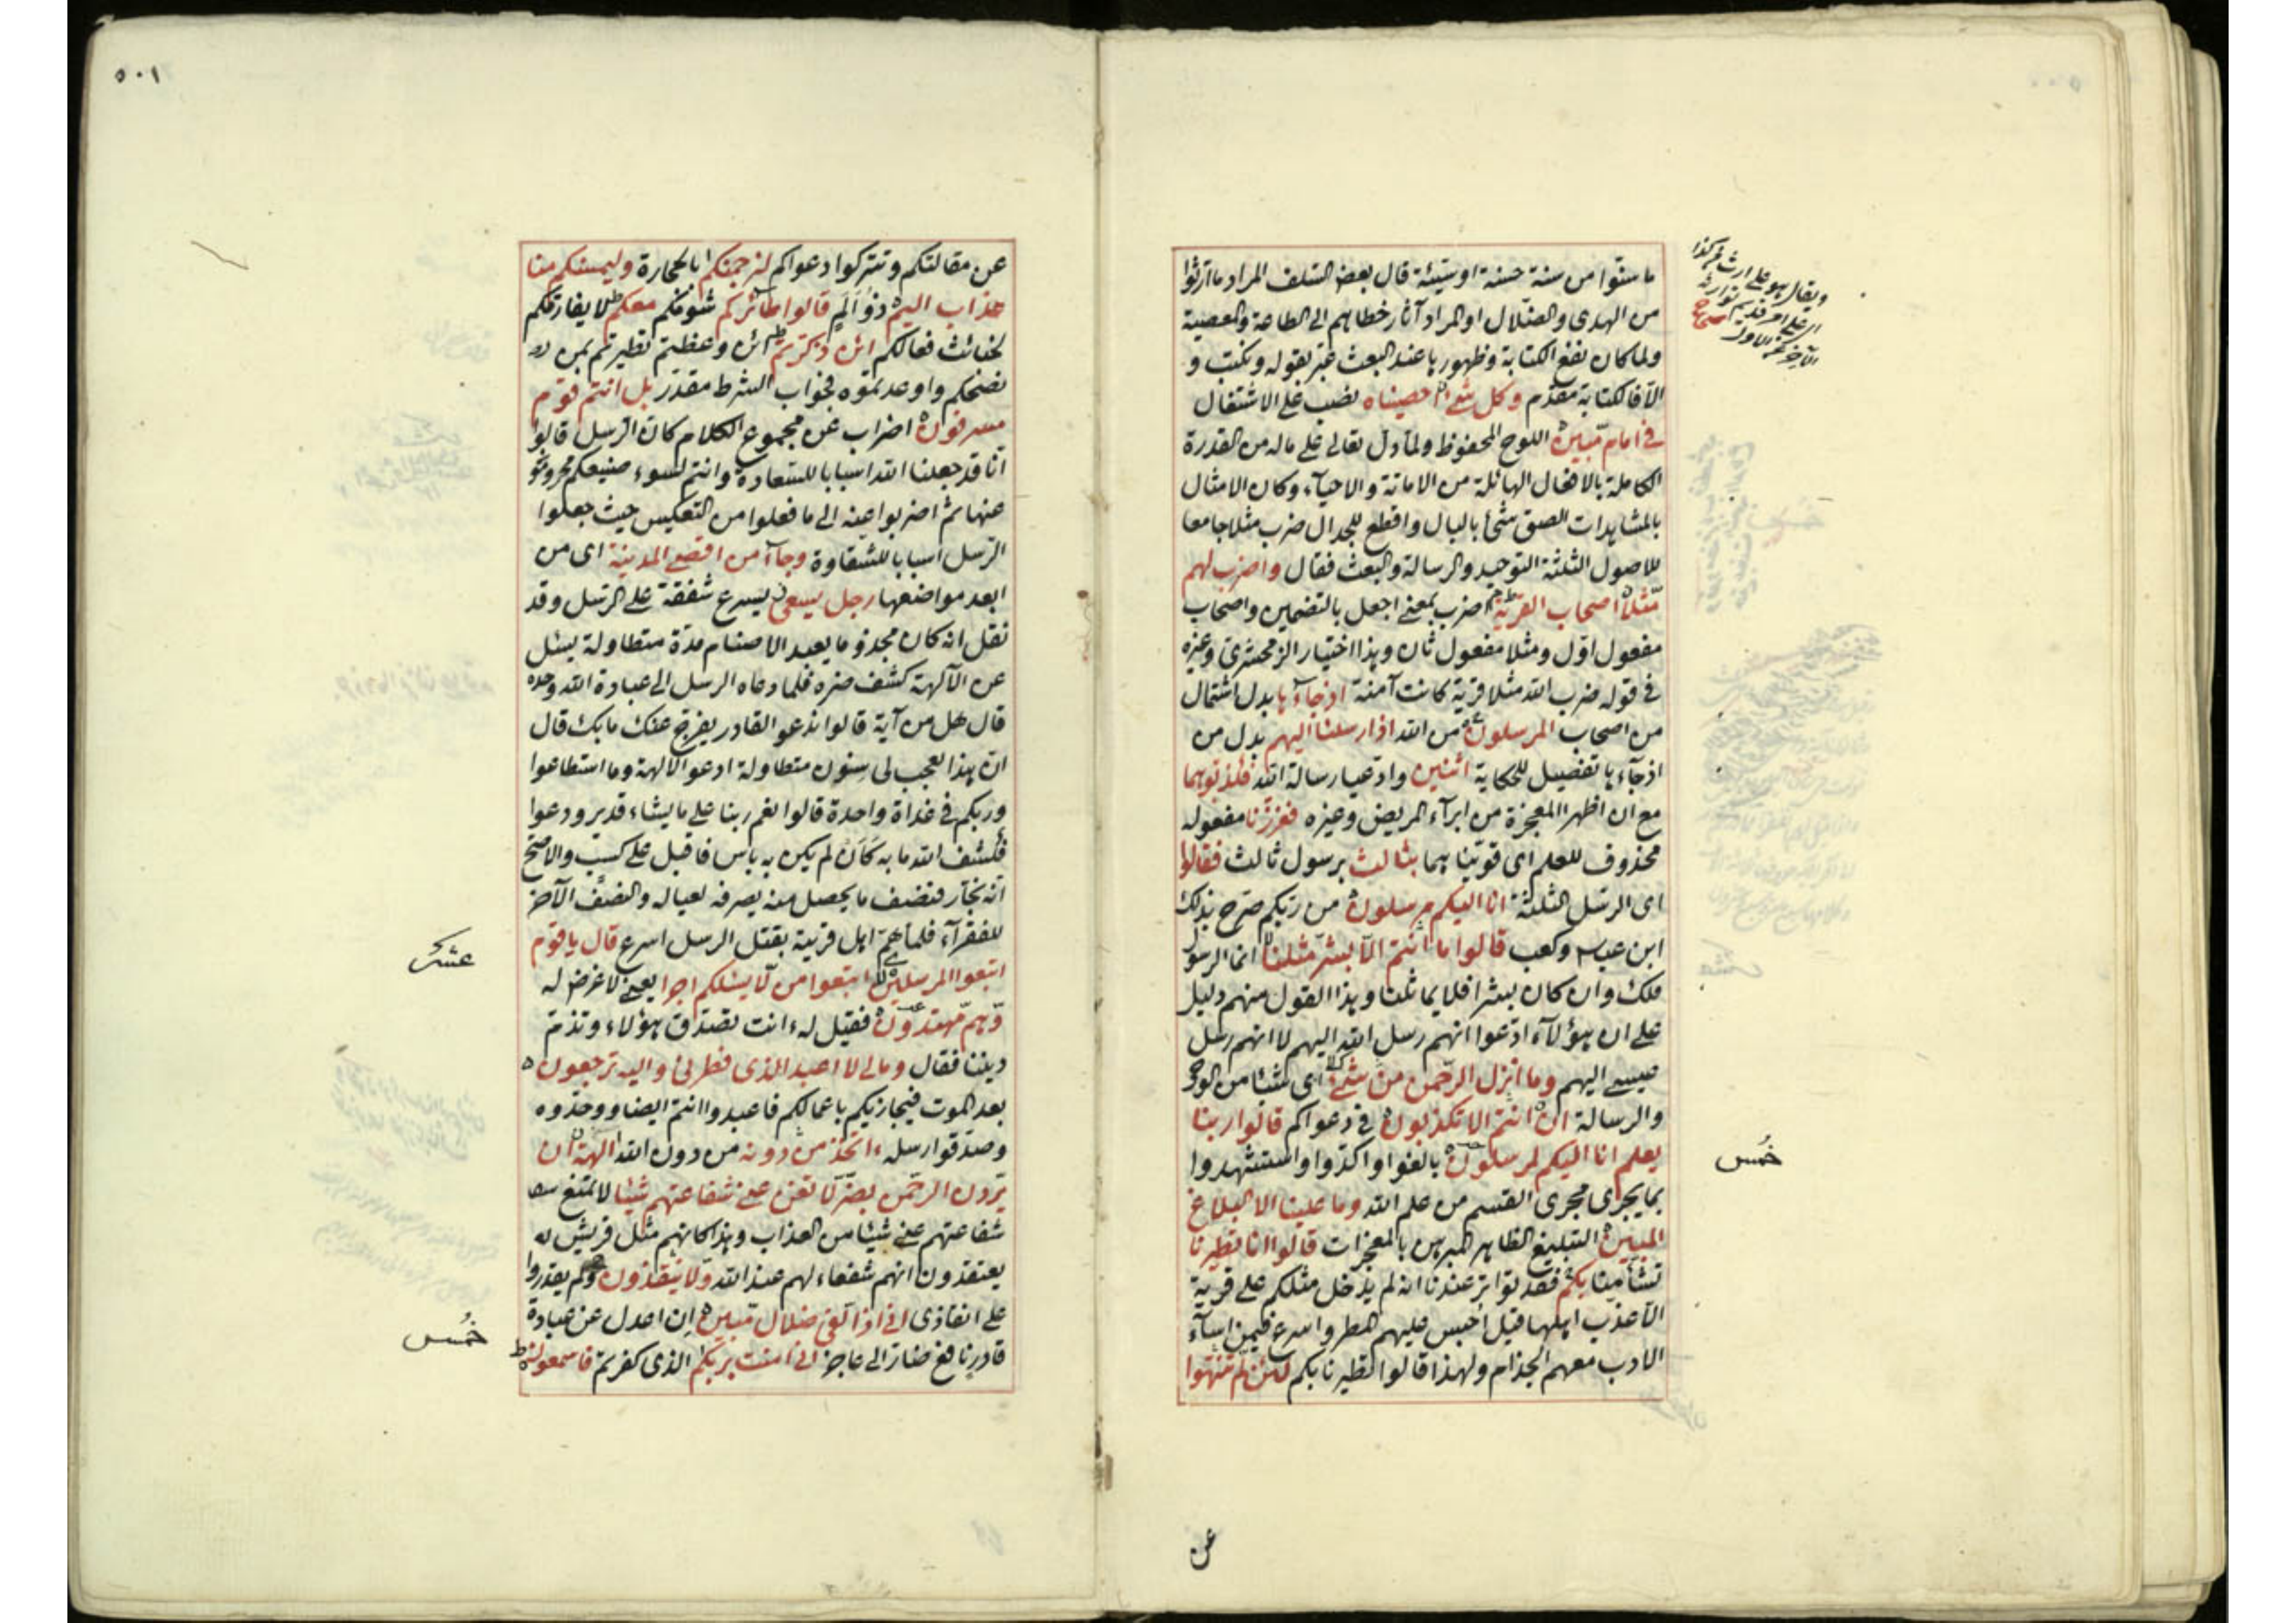 ما سنوا من سنة حسنة او سيئة قال بعض السلف المراد ما اورثوا
من الهدى والضلال او المراد آثار خطاهم الى الطاعة والمعصية
ولما كان نفع الكتابة وظهورها عند البعث عبر بقوله ونكتب و
الا فالكتابة مقدم وكل شئ احصيناه نصب على الاشتغال
فى امام مبين اللوح المحفوظ ولما دل تعالى على ماله من القدرة
الكاملة بالافعال الهائلة من الاماتة والاحياء وكان الامثال
بالمشاهدات الصق شئ بالبال واقطع للجدال ضرب مثلا جامعا
للاصول الثلثة التوحيد والرسالة والبعث فقال واضرب لهم
مثلا اصحاب القرية ضرب بمعنى اجعل بالتضمين واصحاب
مفعول اول ومثلا مفعول ثان وهذا اختيار الزمخشرى وغيره
فى قوله ضرب الله مثلا قرية كانت آمنة اذ جاءها بدل اشتمال
من اصحاب المرسلون من الله اذ ارسلنا اليهم بدل من
اذ جاءها تفصيل للحكاية اثنين وادعيا رسالة الله فكذبوهما
مع ان اظهرا المعجزة من ابراء المريض وغيره فعززنا مفعوله
محذوف للعلم اى قوينا هما بثالث برسول ثالث فقالوا
اى الرسل الثلثة انا اليكم مرسلون من ربكم صرح بذلك
ابن عباس وكعب قالوا ما انتم الا بشر مثلنا انما الرسول
ملك وان كان بشرا فلا يماثلنا وهذا القول منهم دليل
على ان هؤلاء ادعوا انهم رسل الله اليهم لا انهم رسل
عيسى اليهم وما انزل الرحمن من شئ اى شيئا من الوحى
والرسالة ان انتم الا تكذبون فى دعواكم قالوا ربنا
يعلم انا اليكم لمرسلون بالغوا واكدوا واستشهدوا
بما يجرى مجرى القسم من علم الله وما علينا الا البلاغ
المبين التبليغ الظاهر المبرهن بالمعجزات قالوا انا تطيرنا
تشأمنا بكم فقد تواتر عندنا انه لم يدخل مثلكم على قرية
الا عذب اهلها قيل احبس عليهم المطر واسرع فيمن اساء
الادب معهم الجذام ولهذا قالوا تطيرنا بكم لئن لم تنتهوا
خمس
عن
٥٠١
عن مقالتكم وتتركوا دعواكم لنرجمنكم بالحجارة وليمسنكم منا
عذاب اليم ذو الم قالوا طائركم شومكم معكم لا يفارقكم
لخبائث فعالكم ائن ذكرتم ائن وعظتم تطيرتم بمن
نصحكم واوعدتموه فجواب الشرط مقدر بل انتم قوم
مسرفون اضراب عن مجموع الكلام كان الرسل قالوا
انا قد جعلنا الله اسبابا للسعادة وانتم لسوء صنيعكم محرومو
عنها ثم اضربوا عنه الى ما فعلوا من التعكيس حيث جعلوا
الرسل اسبابا للشقاوة وجاء من اقصى المدينة اى من
ابعد مواضعها رجل يسعى يسرع شفقة على الرسل وقد
نقل انه كان مجذوما يعبد الاصنام مدة متطاولة يسئل
عن الآلهة كشف ضره فلما دعاه الرسل الى عبادة الله وحده
قال هل من آية قالوا ندعو القادر يفرج عنك ما بك قال
ان هذا لعجب لى سنون متطاولة ادعو الآلهة وما استطاعوا
وربكم فى غداة واحدة قالوا نعم ربنا على ما يشاء قدير ودعوا
فكشف الله ما به كأن لم يكن به باس فاقبل على كسب والاصح
انه نجار فنصف ما يحصل منه يصرفه لعياله والنصف الآخر
للفقراء فلما هم اهل قرية بقتل الرسل اسرع قال يا قوم
اتبعوا المرسلين اتبعوا من لا يسئلكم اجرا يعنى لا غرض له
وهم مهتدون فقيل له ءانت تصدق هؤلاء وتذم
ديننا فقال ومالى لا اعبد الذى فطرنى واليه ترجعون
بعد الموت فيجازيكم باعمالكم فاعبدوا انتم ايضا ووحدوه
وصدقوا رسله ءاتخذ من دونه من دون الله آلهة ان
يردن الرحمن بضر لا تغن عنى شفاعتهم شيئا لا تنفع
شفاعتهم عنى شيئا من العذاب وهذا كانهم مثل قريش
يعتقدون انهم شفعاء لهم عند الله ولا ينقذون ولم يقدروا
على انقاذى انى اذا لفى ضلال مبين ان اعدل عن عبادة
قادر نافع ضار الى عاجز انى آمنت بربكم الذى كفرتم فاسمعون
عشر
خمس